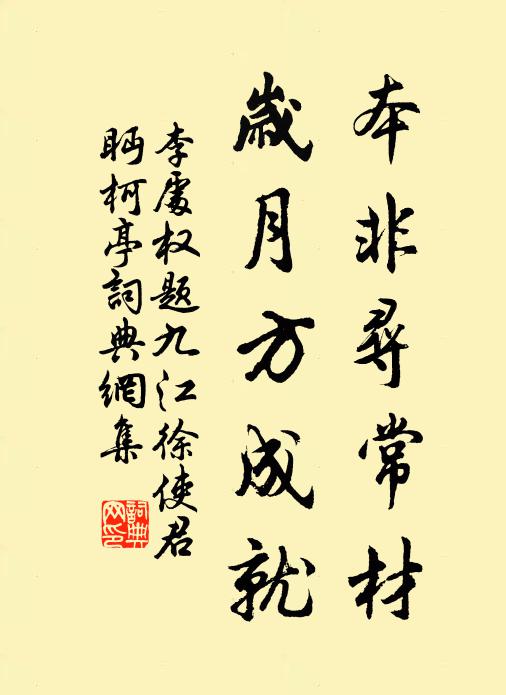 本非尋常材
歲月方成就
李處权题九江徐使君
眄柯亭詞典網集
詞典网印